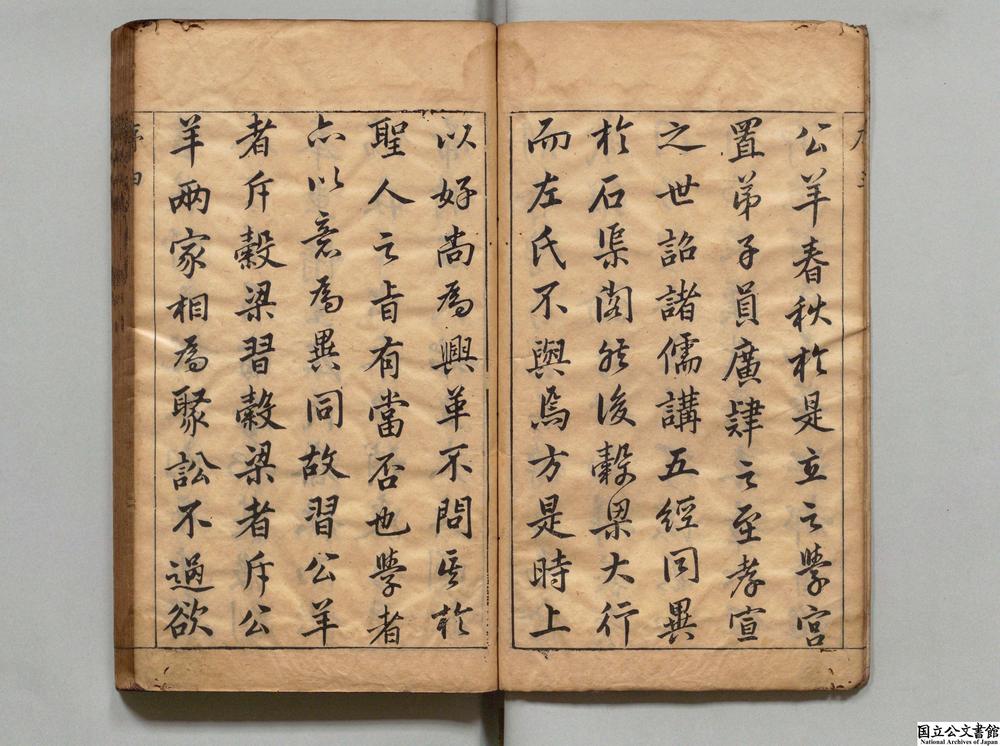 公羊春秋於是立之學宮
置弟子員廣肄之至孝宣
之世詔諸儒講五經同異
於石渠閣然後穀梁大行
而左氏不與焉方是時上
以好尚爲興革不問其於
聖人之旨有當否也學者
亦以意爲異同故習公羊
者斥穀梁習穀梁者斥公
羊兩家相爲聚訟不過欲
序四
国立公文書館
National Archives of Japan